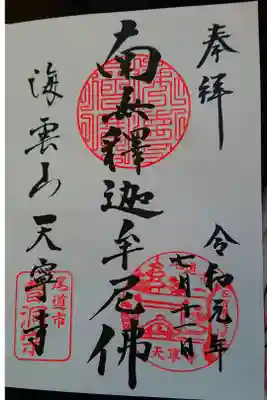 奉拝
令和元年
七月十一日
南無釋迦牟尼佛
海雲山天寧寺
尾道市
天寧寺